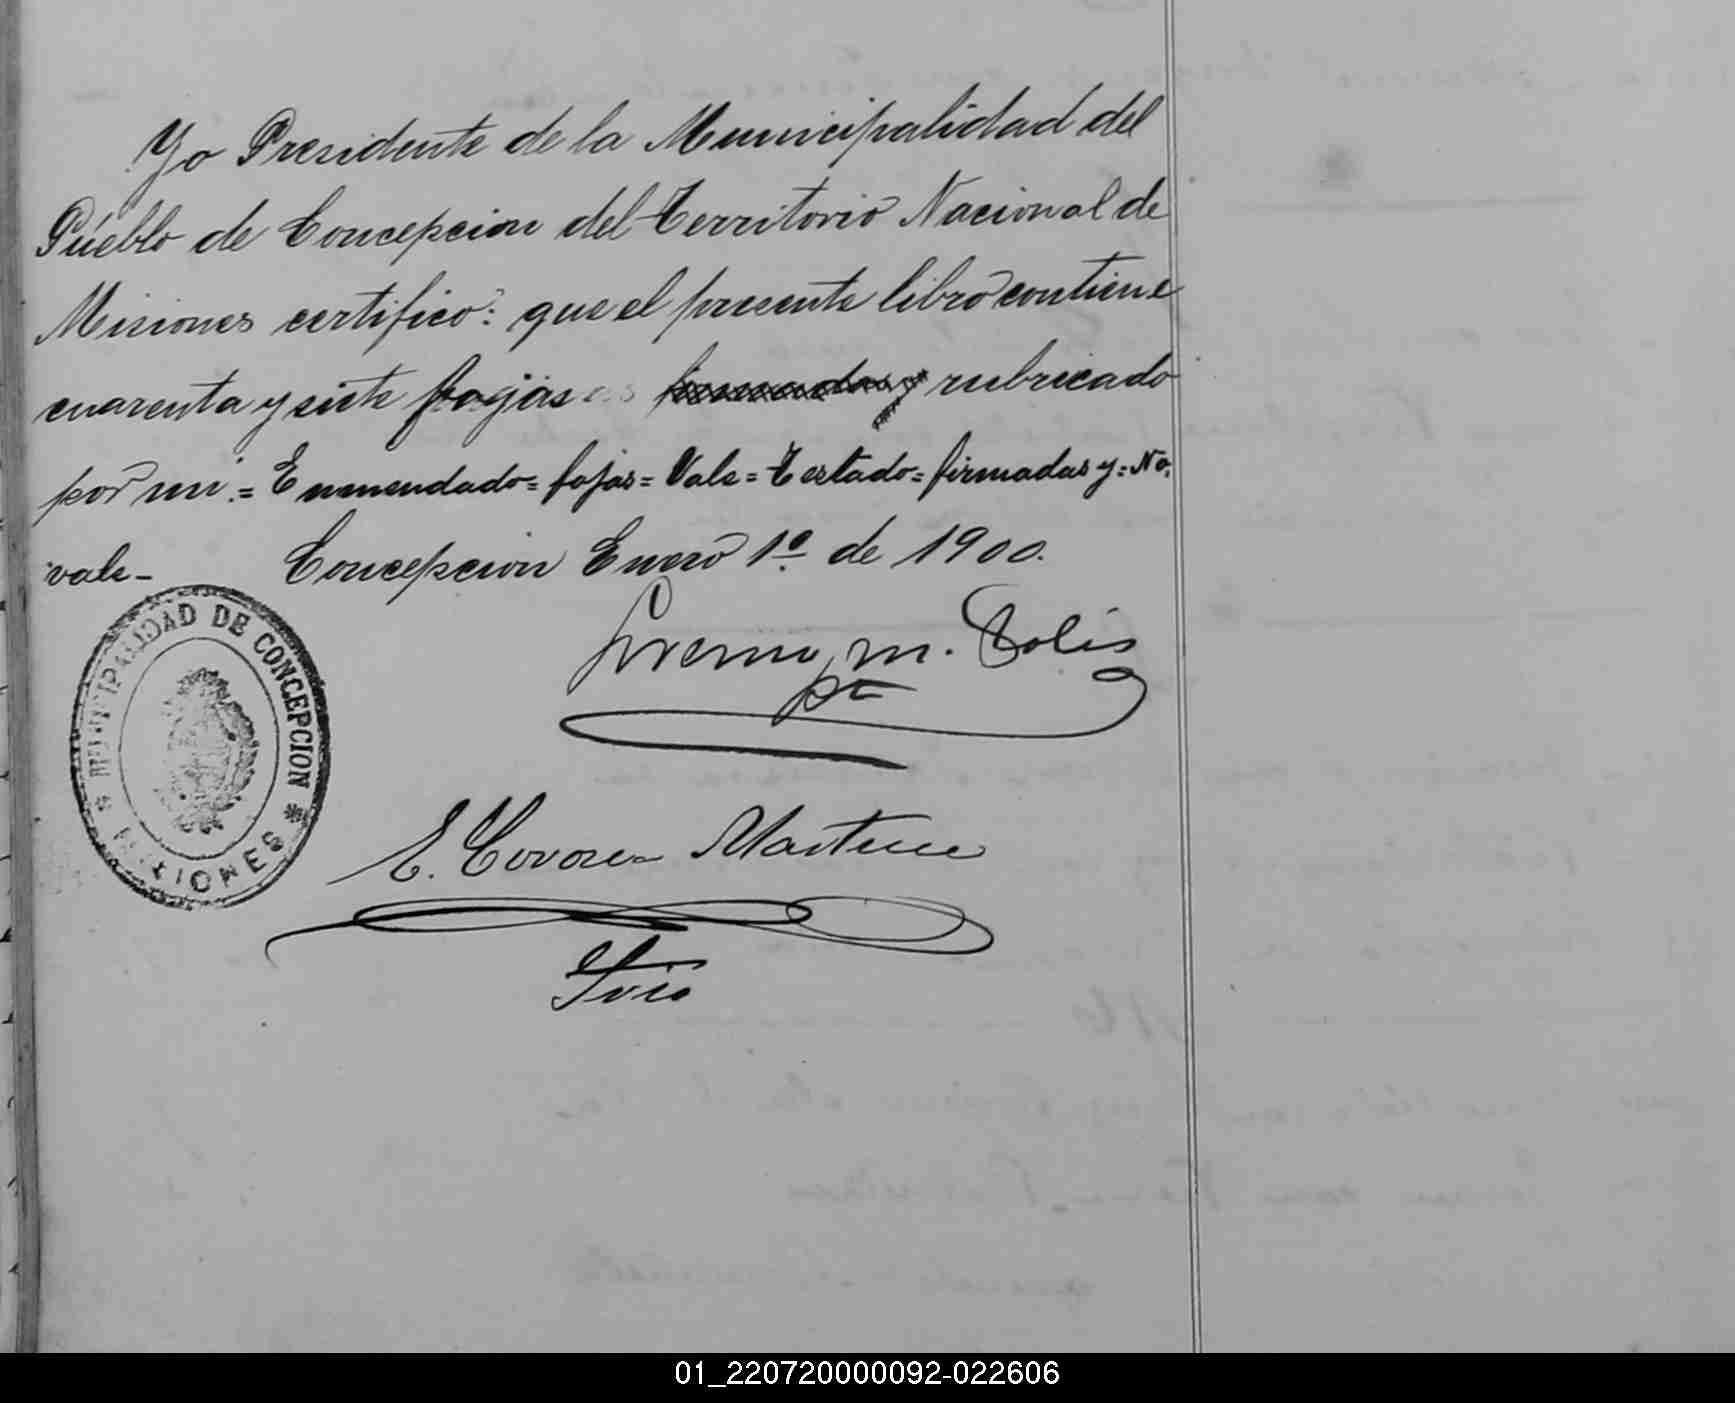 Yo Presidente de la Municipalidad del
Pueblo de Concepcion del Territorio Nacional de
Misiones certifico: que el presente libro contiene
cuarenta y siete fojas firmadas y rubricado
por mi.= Enmendado= fojas= Vale= Testado= firmadas y= No.
vale-
Concepcion Enero 1º de 1900.
MUNICIPALIDAD DE CONCEPCION
* MISIONES *
m. Solis
E. Martinez
Srio
01_220720000092-022606